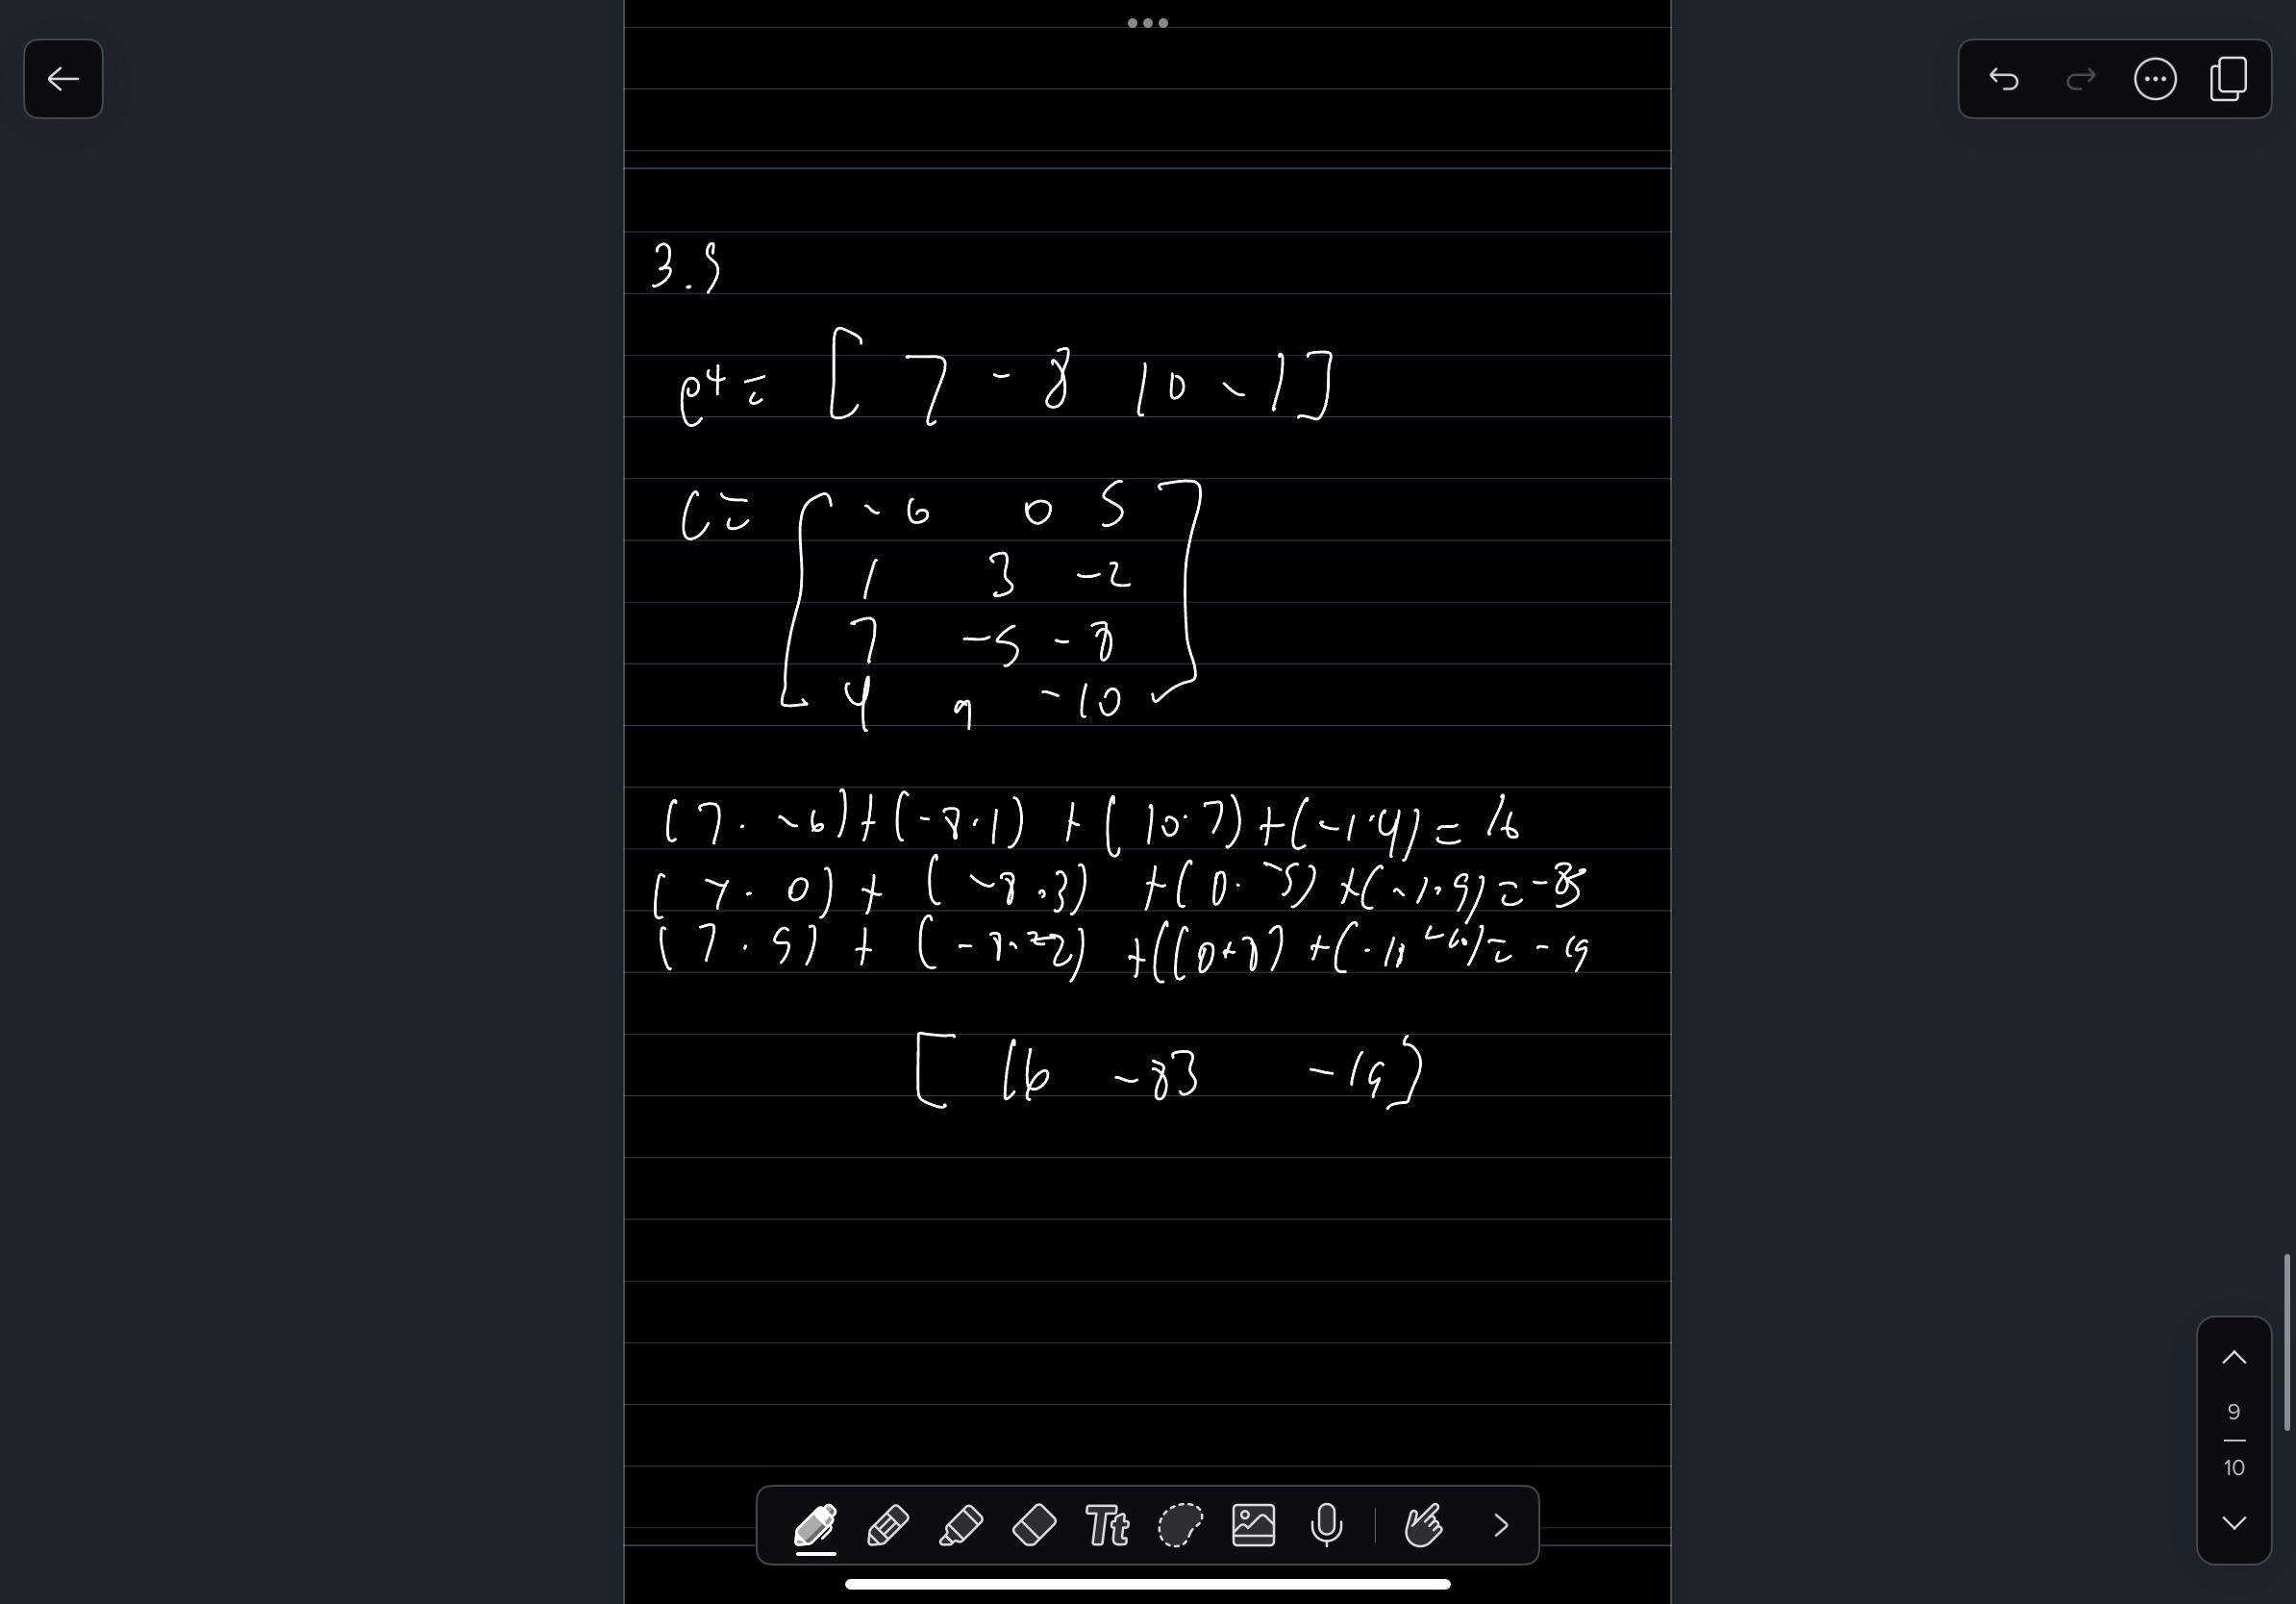 3.9
e⁴ = [ 7 -8 10 -1 ]
C = [ -6 0 5
1 3 -2
7 -5 -8
4 9 -10 ]
(7 · -6) + (-8 · 1) + (10 · 7) + (-1 · 4) = 16
(7 · 0) + (-8 · 3) + (10 · -5) + (-1 · 9) = -83
(7 · 5) + (-8 · -2) + (10 · -8) + (-1 · -10) = -19
[ 16 -83 -19 ]
Tt
9
10